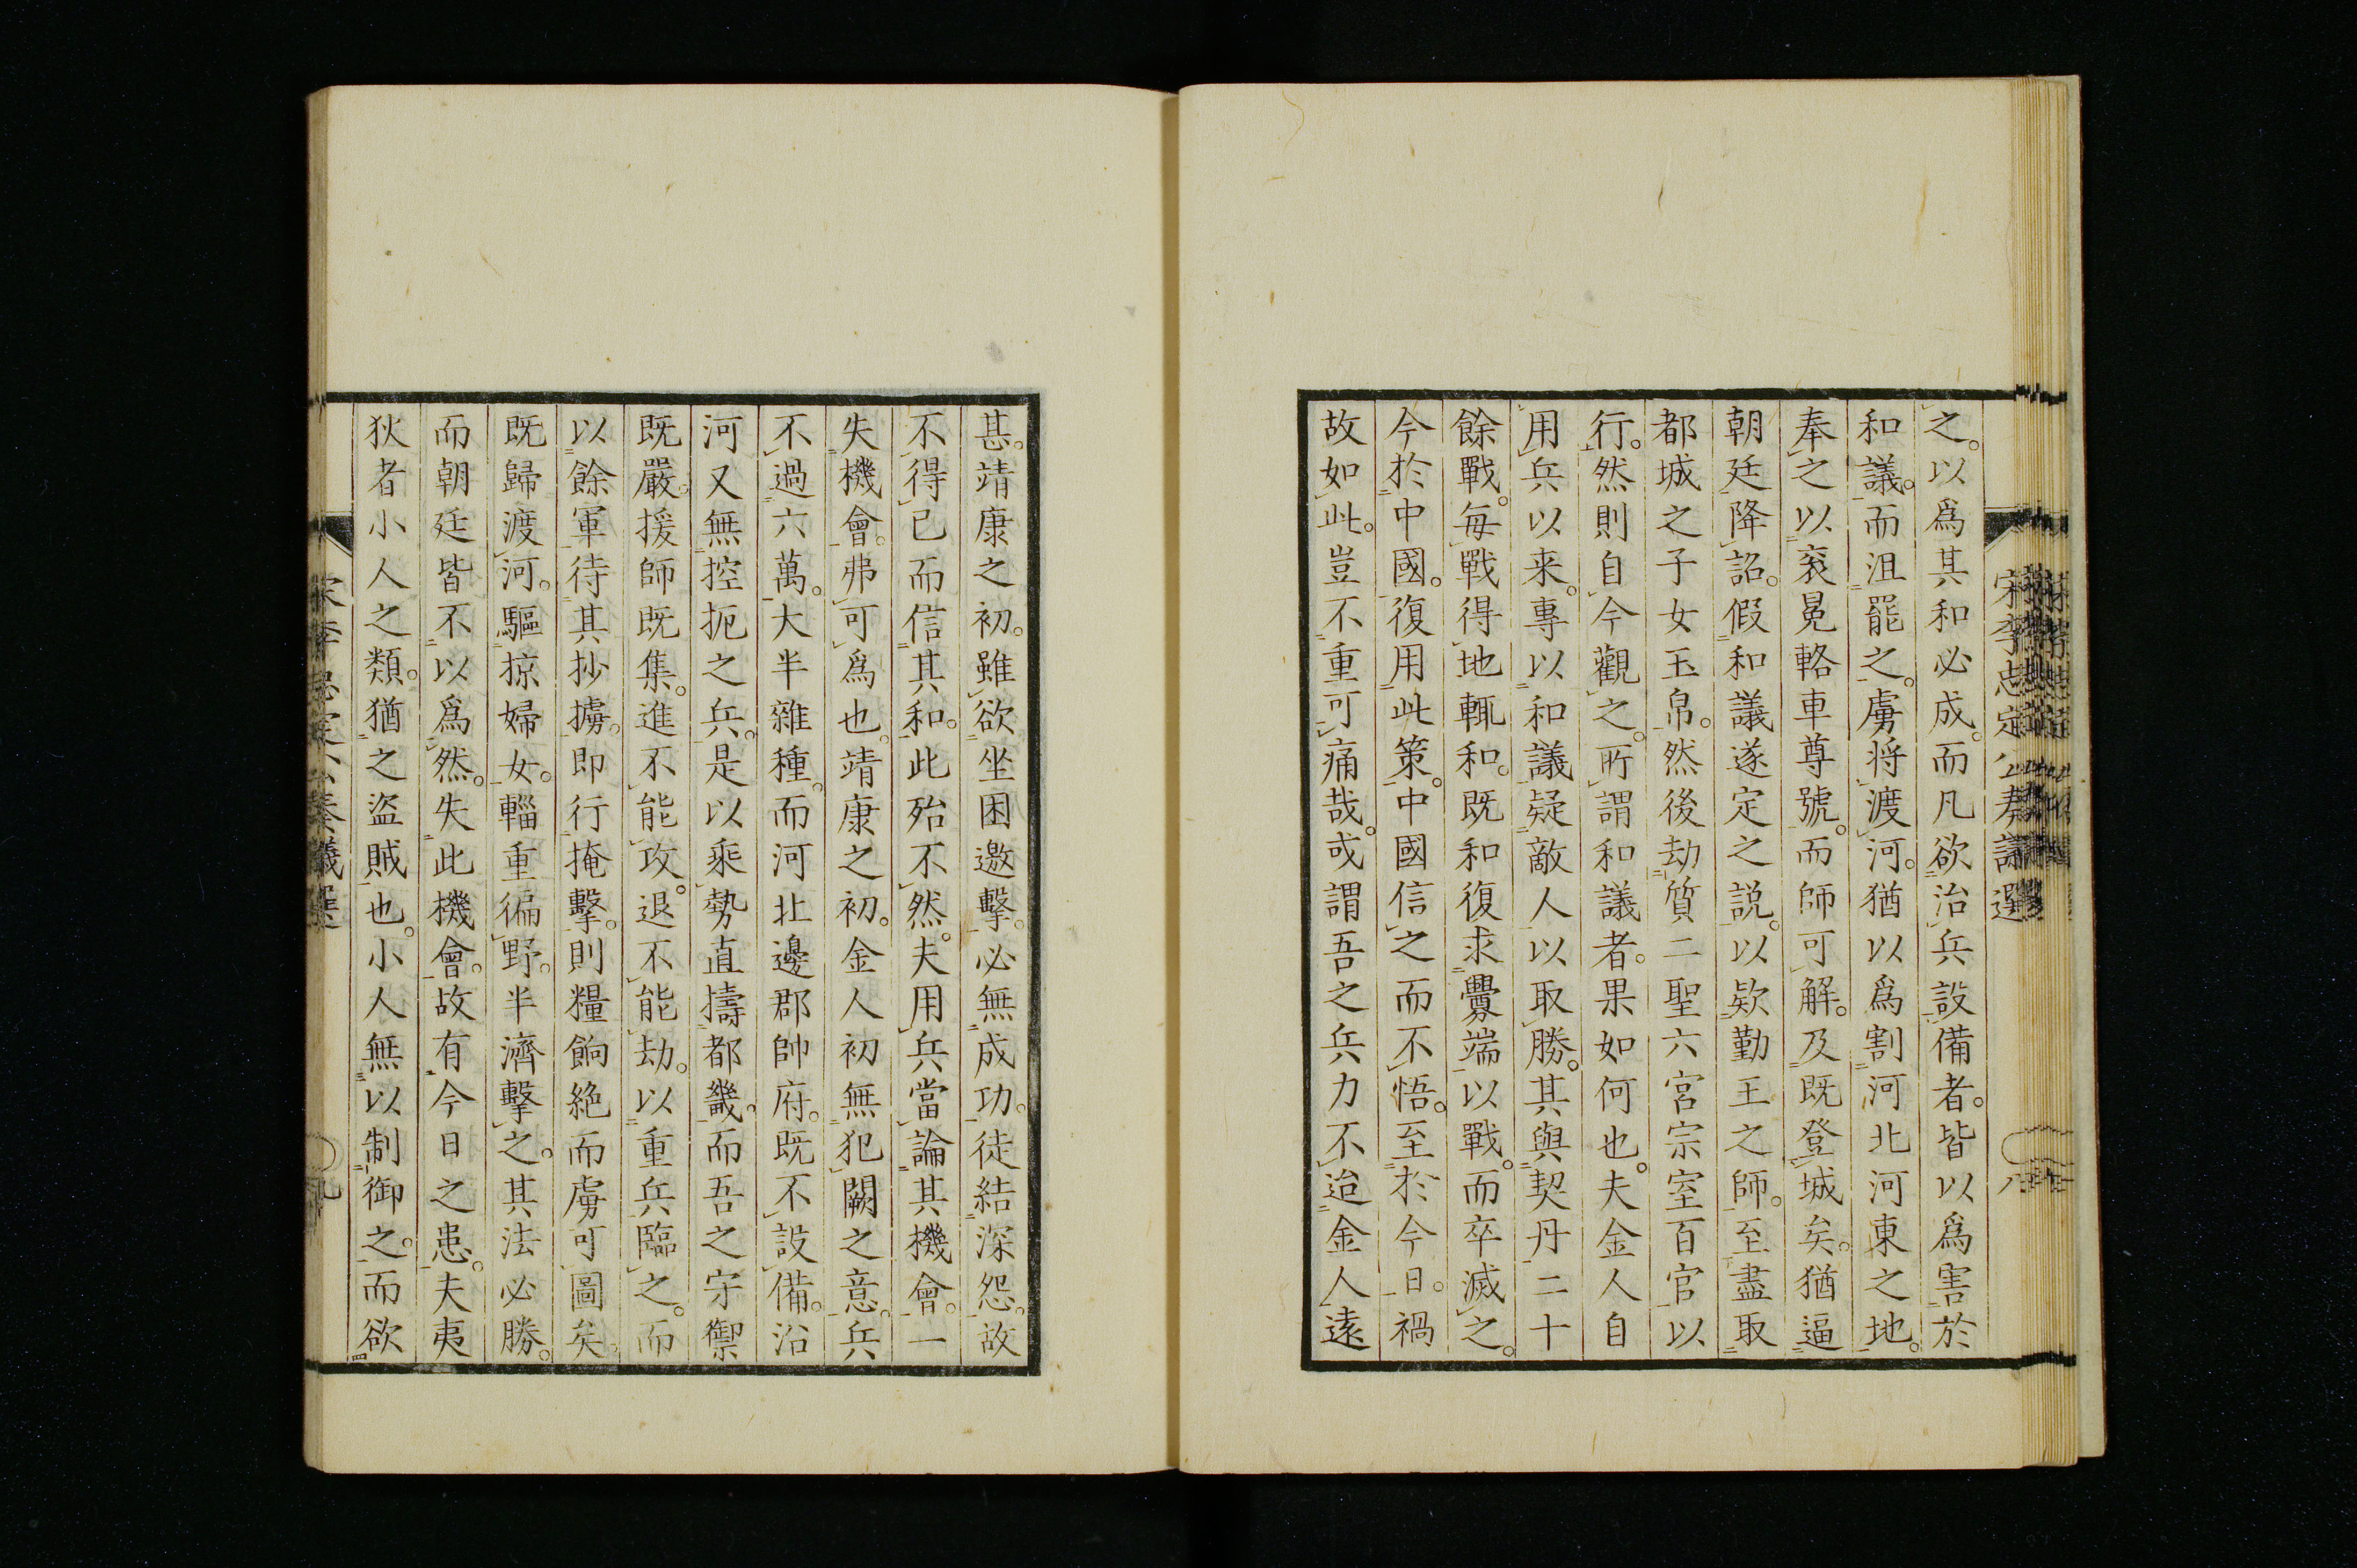 宋李忠定公奏議選
八
之。以爲其和必成。而凡欲治兵設備者。皆以爲害於
和議。而沮罷之。虜将渡河。猶以爲割河北河東之地。
奉之以衮冕輅車尊號。而師可解。及既登城矣。猶逼
朝廷降詔。假和議遂定之説。以欵勤王之師。至盡取
都城之子女玉帛。然後劫質二聖六宮宗室百官以
行。然則自今觀之。所謂和議者。果如何也。夫金人自
用兵以来。專以和議疑敵人以取勝。其與契丹二十
餘戰。毎戰得地輙和。既和復求釁端以戰。而卒滅之。
今於中國。復用此策。中國信之而不悟。至於今日。禍
故如此。豈不重可痛哉。或謂吾之兵力不迨金人遠
甚。靖康之初。雖欲坐困邀擊。必無成功。徒結深怨。故
不得已而信其和。此殆不然。夫用兵當論其機會。一
失機會。弗可爲也。靖康之初。金人初無犯闕之意。兵
不過六萬。大半雜種。而河北邊郡帥府。既不設備。沿
河又無控扼之兵。是以乘勢直擣都畿。而吾之守禦
既嚴。援師既集。進不能攻。退不能劫。以重兵臨之。而
以餘軍待其抄擄。即行掩擊。則糧餉絶而虜可圖矣。
既歸渡河。驅掠婦女。輜重徧野。半濟擊之。其法必勝。
而朝廷皆不以爲然。失此機會。故有今日之患。夫夷
狄者小人之類。猶之盜賊也。小人無以制御之。而欲
宋李忠定公奏議選
九